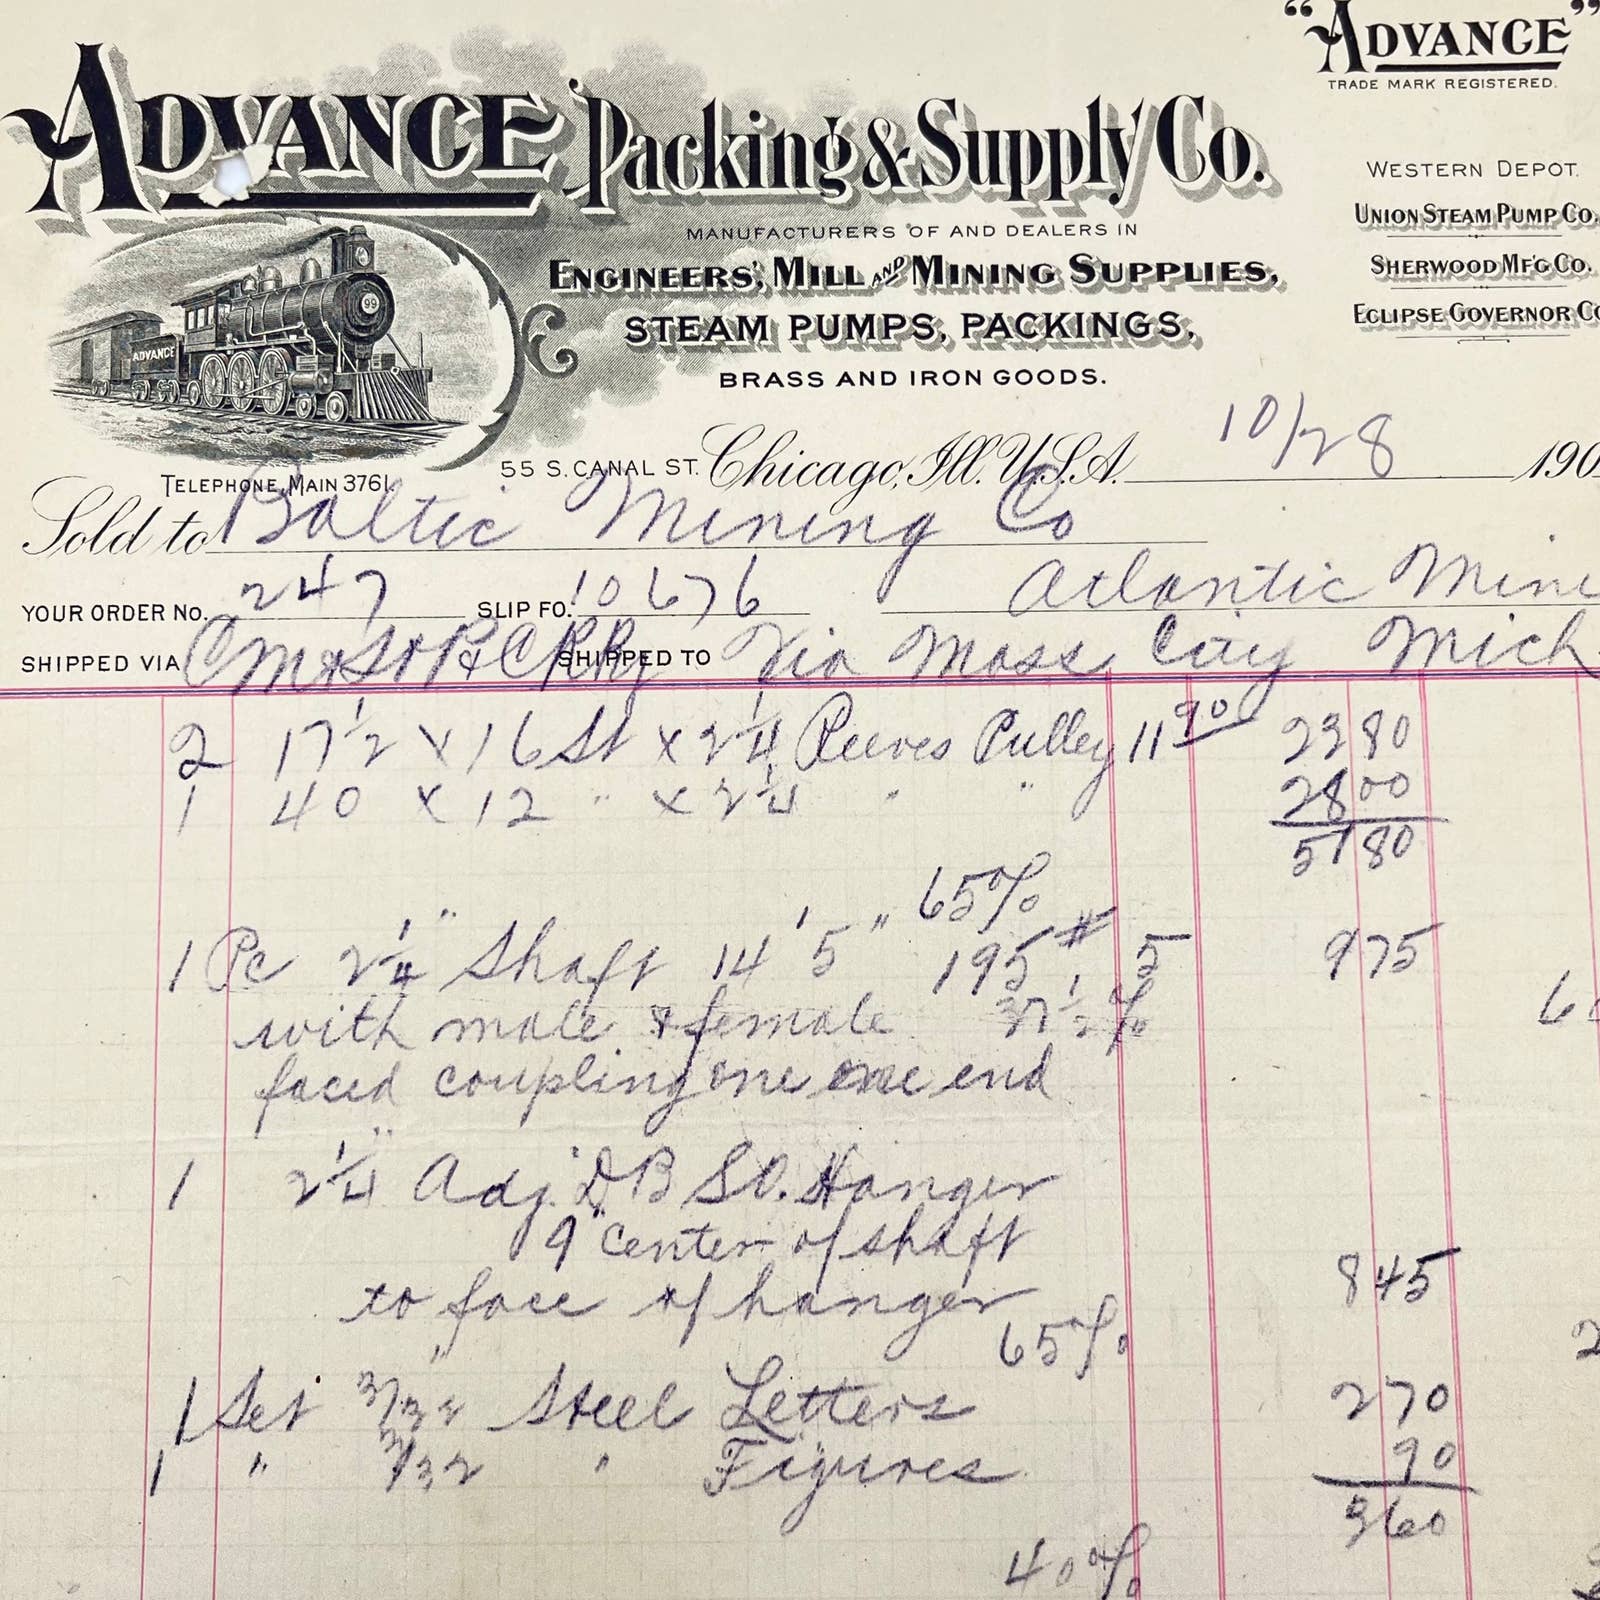 "ADVANCE"
TRADE MARK REGISTERED.
ADVANCE Packing & Supply Co.
MANUFACTURERS OF AND DEALERS IN
ENGINEERS', MILL AND MINING SUPPLIES,
STEAM PUMPS, PACKINGS,
BRASS AND IRON GOODS.
WESTERN DEPOT.
UNION STEAM PUMP CO.
SHERWOOD MF'G CO.
ECLIPSE GOVERNOR CO
99
ADVANCE
TELEPHONE, MAIN 3761
55 S. CANAL ST. Chicago, Ill. U.S.A. 10/28 190
Sold to Baltic Mining Co
YOUR ORDER NO. 247 SLIP FO. 10676 Atlantic Mine
SHIPPED VIA CM&StP&C RRy SHIPPED TO Via Mass City Mich.
2 17 1/2 x 16 St x 2 1/4 Reeves Pulley 11 90 23 80
1 40 x 12 " x 2 1/4 " " 28 00
51 80
65%
1 Pc 2 1/4" Shaft 14' 5" 195# 5 9 75
with male & female 37 1/2 %
faced coupling one end
1 2 1/4" Adj. DB SO. Hanger
9" center of shaft
to face of hanger 8 45
65%
1 Set 3/32" Steel Letters 2 70
1 " 3/32 " Figures 90
3 60
40%